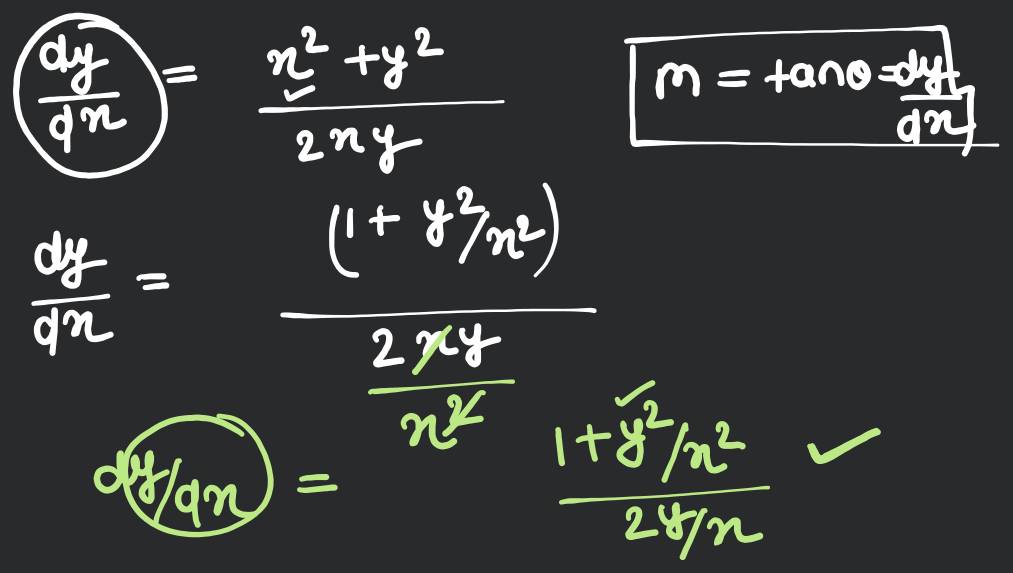 dy/dx = x² + y² / 2xy
m = tanθ = dy/dx
dy/dx = (1 + y²/x²) / 2xy/x²
dy/dx = 1 + y²/x² / 2y/x